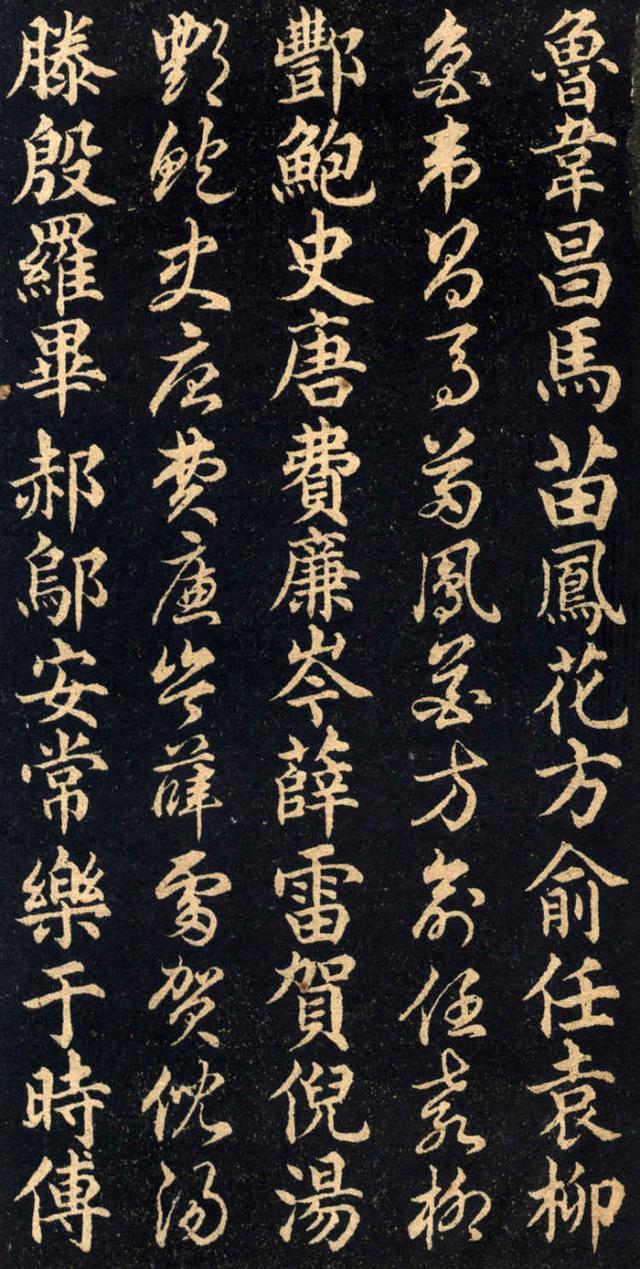 魯韋昌馬苗鳳花方俞任袁柳
魯韋昌馬苗鳳花方俞任袁柳
酆鮑史唐費廉岑薛雷賀倪湯
酆鮑史唐費廉岑薛雷賀倪湯
滕殷羅畢郝鄔安常樂于時傅